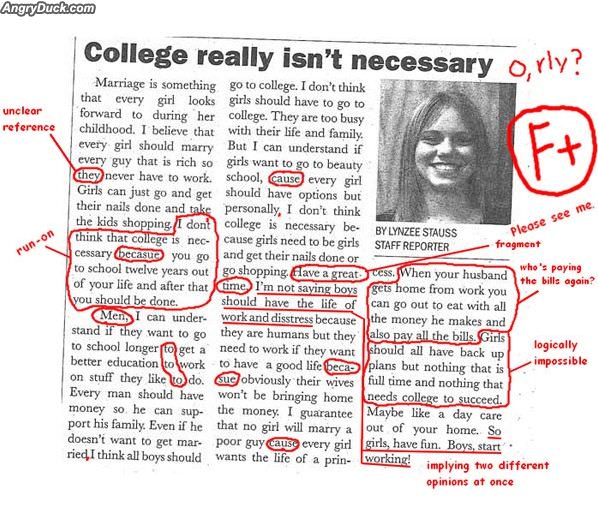 AngryDuck.com
College really isn't necessary
o, rly?
Marriage is something
that every girl looks
forward to during her
childhood. I believe that
every girl should marry
every guy that is rich so
they never have to work.
Girls can just go and get
their nails done and take
the kids shopping. I dont
think that college is nec-
cessary becasue you go
to school twelve years out
of your life and after that
you should be done.
Men, I can under-
stand if they want to go
to school longer to get a
better education to work
on stuff they like to do.
Every man should have
money so he can sup-
port his family. Even if he
doesn't want to get mar-
ried, I think all boys should
go to college. I don't think
girls should have to go to
college. They are too busy
with their life and family.
But I can understand if
girls want to go to beauty
school, cause every girl
should have options but
personally, I don't think
college is necessary be-
cause girls need to be girls
and get their nails done or
go shopping. Have a great
time. I'm not saying boys
should have the life of
work and disstress because
they are humans but they
need to work if they want
to have a good life beca-
sue obviously their wives
won't be bringing home
the money. I guarantee
that no girl will marry a
poor guy cause every girl
wants the life of a prin-
BY LYNZEE STAUSS
STAFF REPORTER
cess. When your husband
gets home from work you
can go out to eat with all
the money he makes and
also pay all the bills. Girls
should all have back up
plans but nothing that is
full time and nothing that
needs college to succeed.
Maybe like a day care
out of your home. So
girls, have fun. Boys, start
working!
unclear
reference
run-on
F+
Please see me.
fragment
who's paying
the bills again?
logically
impossible
implying two different
opinions at once